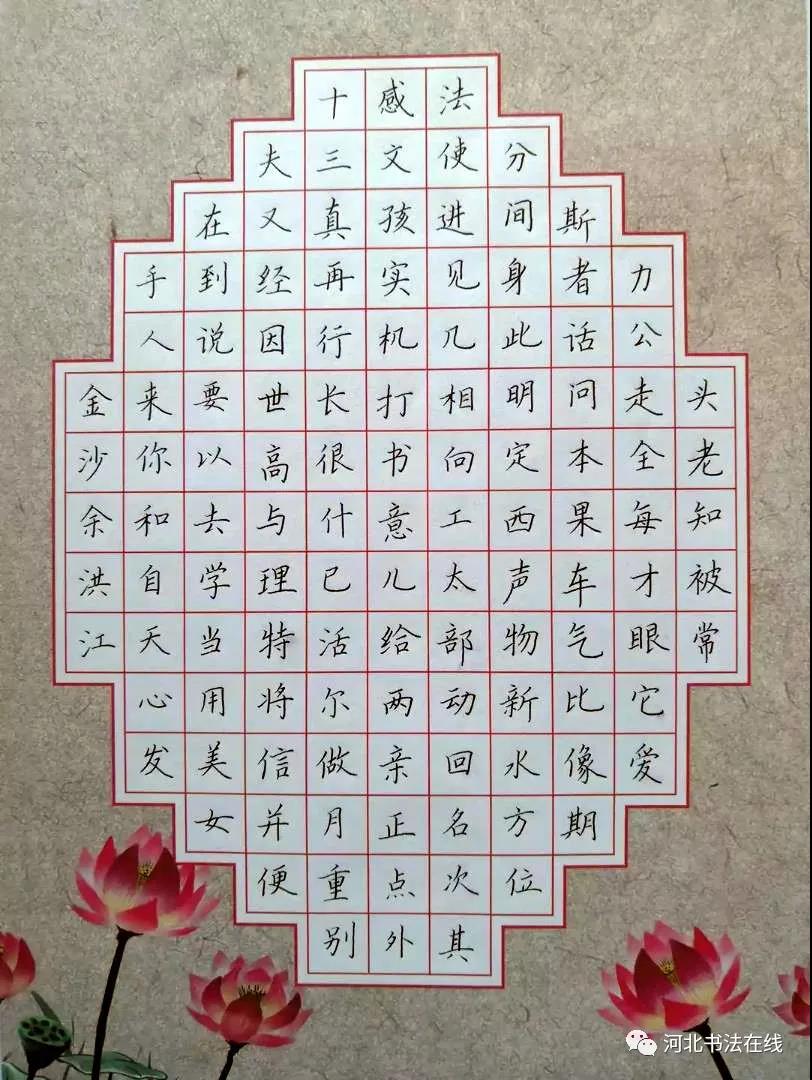 十感法
夫三文使分
在又真孩进间斯
手到经再实见身者力
人说因行机几此话公
金来要世长打相明问走头
沙你以高很书向定本全老
余和去与什意工西果每知
洪自学理已儿太声车才被
江天当特活给部物气眼常
心用将尔两动新比它
发美信做亲回水像爱
女并月正名方期
便重点次位
别外其
河北书法在线